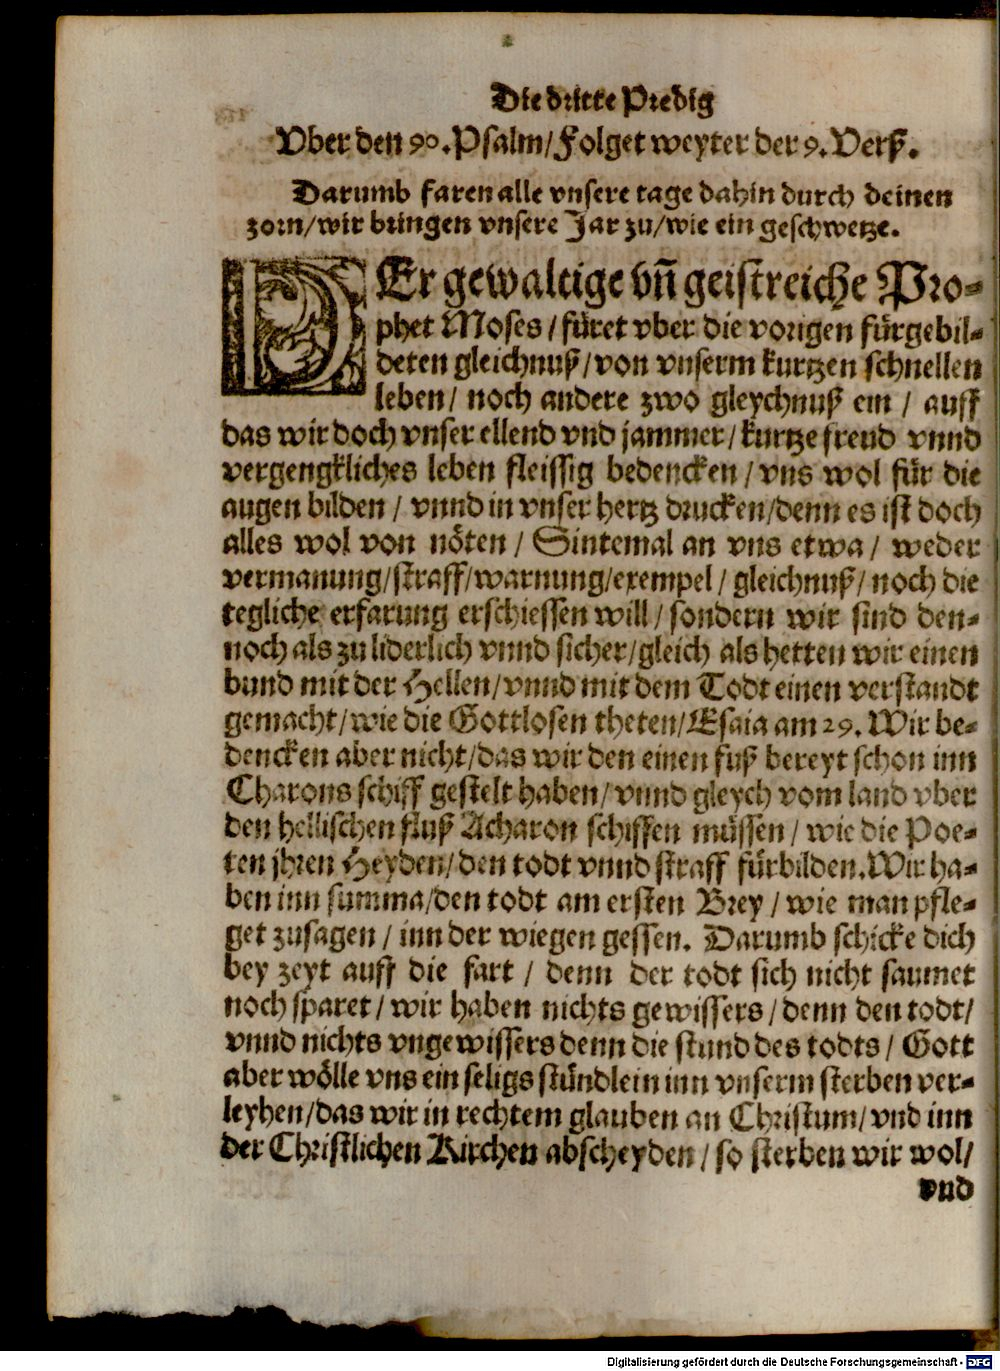 Die dritte Predig
Vber den 90. Psalm/ Folget weyter der 9. Verß.
Darumb faren alle vnsere tage dahin durch deinen
zorn/ wir bringen vnsere Jar zu/ wie ein geschwetze.
DEr gewaltige vn̄ geistreiche Pro-
phet Moses / füret vber die vorigen fürgebil-
deten gleichnuß/ von vnserm kurtzen schnellen
leben/ noch andere zwo gleychnuß ein / auff
das wir doch vnser ellend vnd jammer/ kurtze freud vnnd
vergengkliches leben fleissig bedencken / vns wol für die
augen bilden / vnnd in vnser hertz drucken/ denn es ist doch
alles wol von nöten / Sintemal an vns etwa / weder
vermanung/ straff/ warnung/ exempel / gleichnuß/ noch die
tegliche erfarung erschiessen will/ sondern wir sind den-
noch als zu liderlich vnnd sicher/ gleich als hetten wir einen
bund mit der Hellen/ vnnd mit dem Todt einen verstandt
gemacht/ wie die Gottlosen theten/ Esaia am 29. Wir be-
dencken aber nicht/ das wir den einen fuß bereyt schon inn
Charons schiff gestelt haben/ vnnd gleych vom land vber
den hellischen fluß Acharon schiffen müssen / wie die Poe-
ten jhren Heyden/ den todt vnnd straff fürbilden. Wir ha-
ben inn summa/ den todt am ersten Brey / wie man pfle-
get zusagen / inn der wiegen gessen. Darumb schicke dich
bey zeyt auff die fart / denn der todt sich nicht saumet
noch sparet / wir haben nichts gewissers / denn den todt/
vnnd nichts vngewissers denn die stund des todts / Gott
aber wölle vns ein seligs stündlein inn vnserm sterben ver-
leyhen/ das wir in rechtem glauben an Christum/ vnd inn
der Christlichen Kirchen abscheyden / so sterben wir wol/
vnd
Digitalisierung gefördert durch die Deutsche Forschungsgemeinschaft - DFG